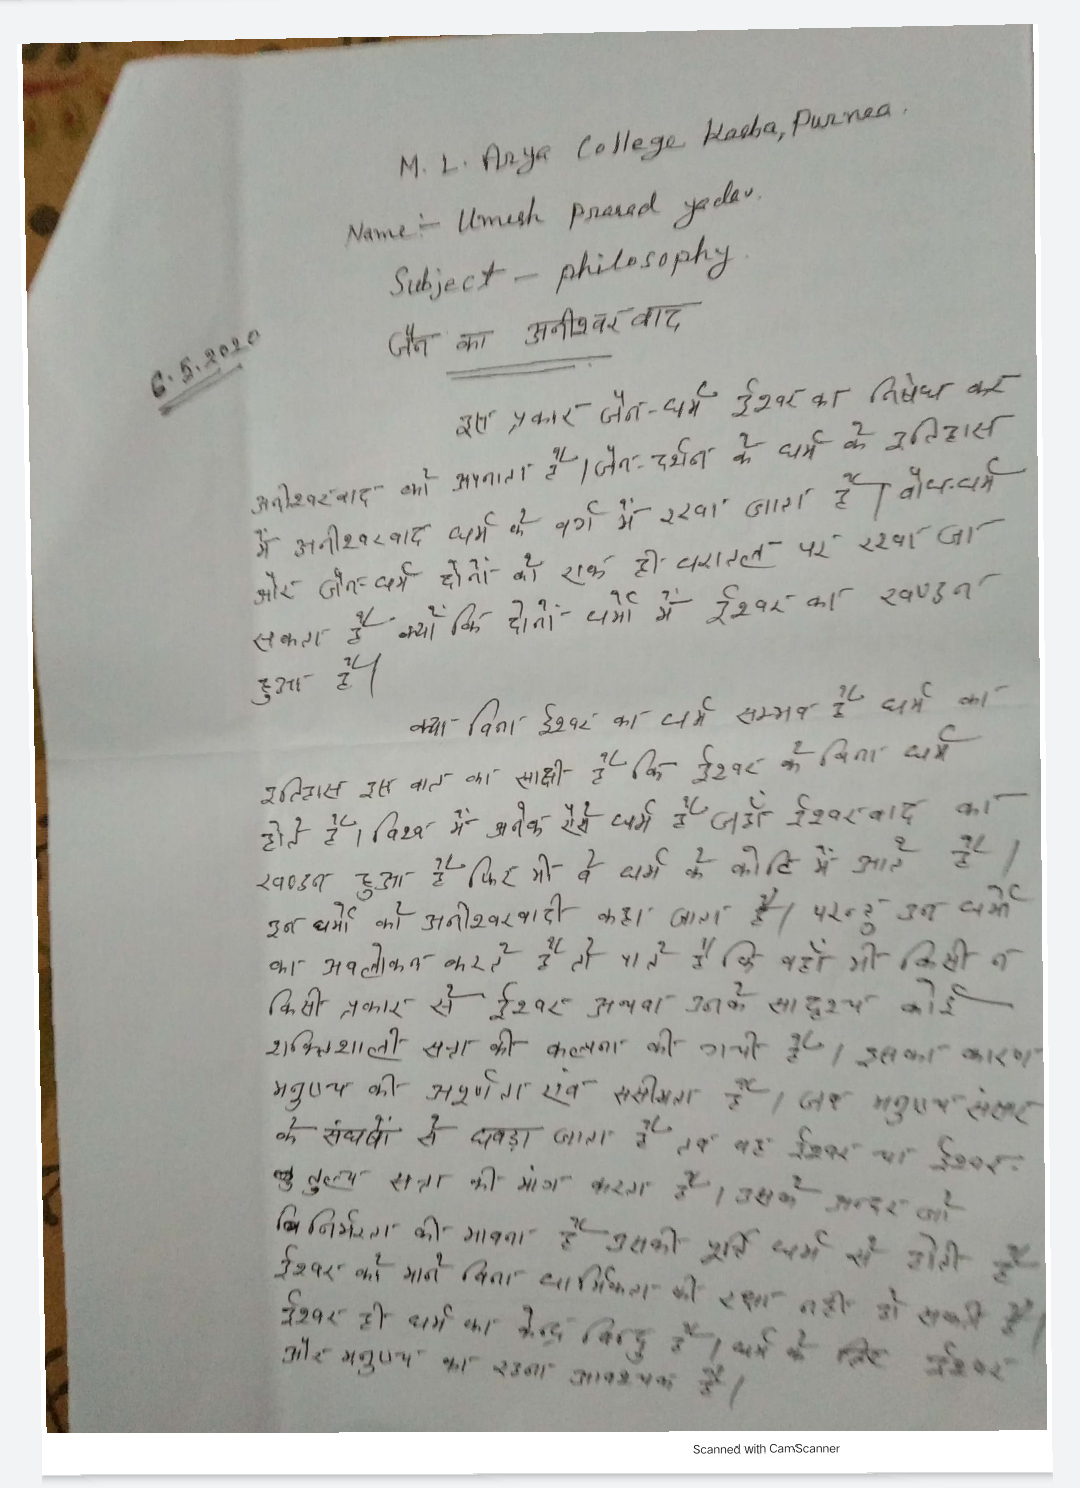 M. L. Arya College Kasba, Purnea.
Name:- Umesh Prasad yadav.
Subject - philosophy.
जैन का अनीश्वरवाद
6.5.2020
इस प्रकार जैन-धर्म ईश्वर का निषेध कर
अनीश्वरवाद को अपनाता है। जैन-दर्शन के धर्म के इतिहास
में अनीश्वरवाद धर्म के वर्ग में रखा जाता है। बौध-धर्म
और जैन-धर्म दोनों को एक ही धरातल पर रखा जा
सकता है क्यों कि दोनों धर्मो में ईश्वर का खण्डन
हुआ है।
क्या बिना ईश्वर का धर्म सम्भव है धर्म का
इतिहास इस बात का साक्षी है कि ईश्वर के बिना धर्म
होते है। विश्व में अनेक ऐसे धर्म है जहाँ ईश्वरवाद का
खण्डन हुआ है फिर भी वे धर्म के कोटि में आते है।
इन धर्मो को अनीश्वरवादी कहा जाता है। परन्तु उन धर्मो
का अवलोकन करते है तो पाते है कि वहाँ भी किसी न
किसी प्रकार से ईश्वर अथवा उनके सादृश्य कोई
शक्तिशाली सत्ता की कल्पना की गयी है। इसका कारण
मनुष्य की अपूर्णता एवं ससीमता है। जब मनुष्य संसार
के संघर्षो से घबड़ा जाता है तब वह ईश्वर या ईश्वर-
तुल्य सत्ता की मांग करता है। उसके अन्दर जो
निर्भरता की भावना है उसकी पूर्ति धर्म से होती है
ईश्वर को माने बिना धार्मिकता की रक्षा नही हो सकती है।
ईश्वर ही धर्म का केन्द्र बिन्दु है। धर्म के लिए ईश्वर
और मनुष्य का रहना आवश्यक है।
Scanned with CamScanner